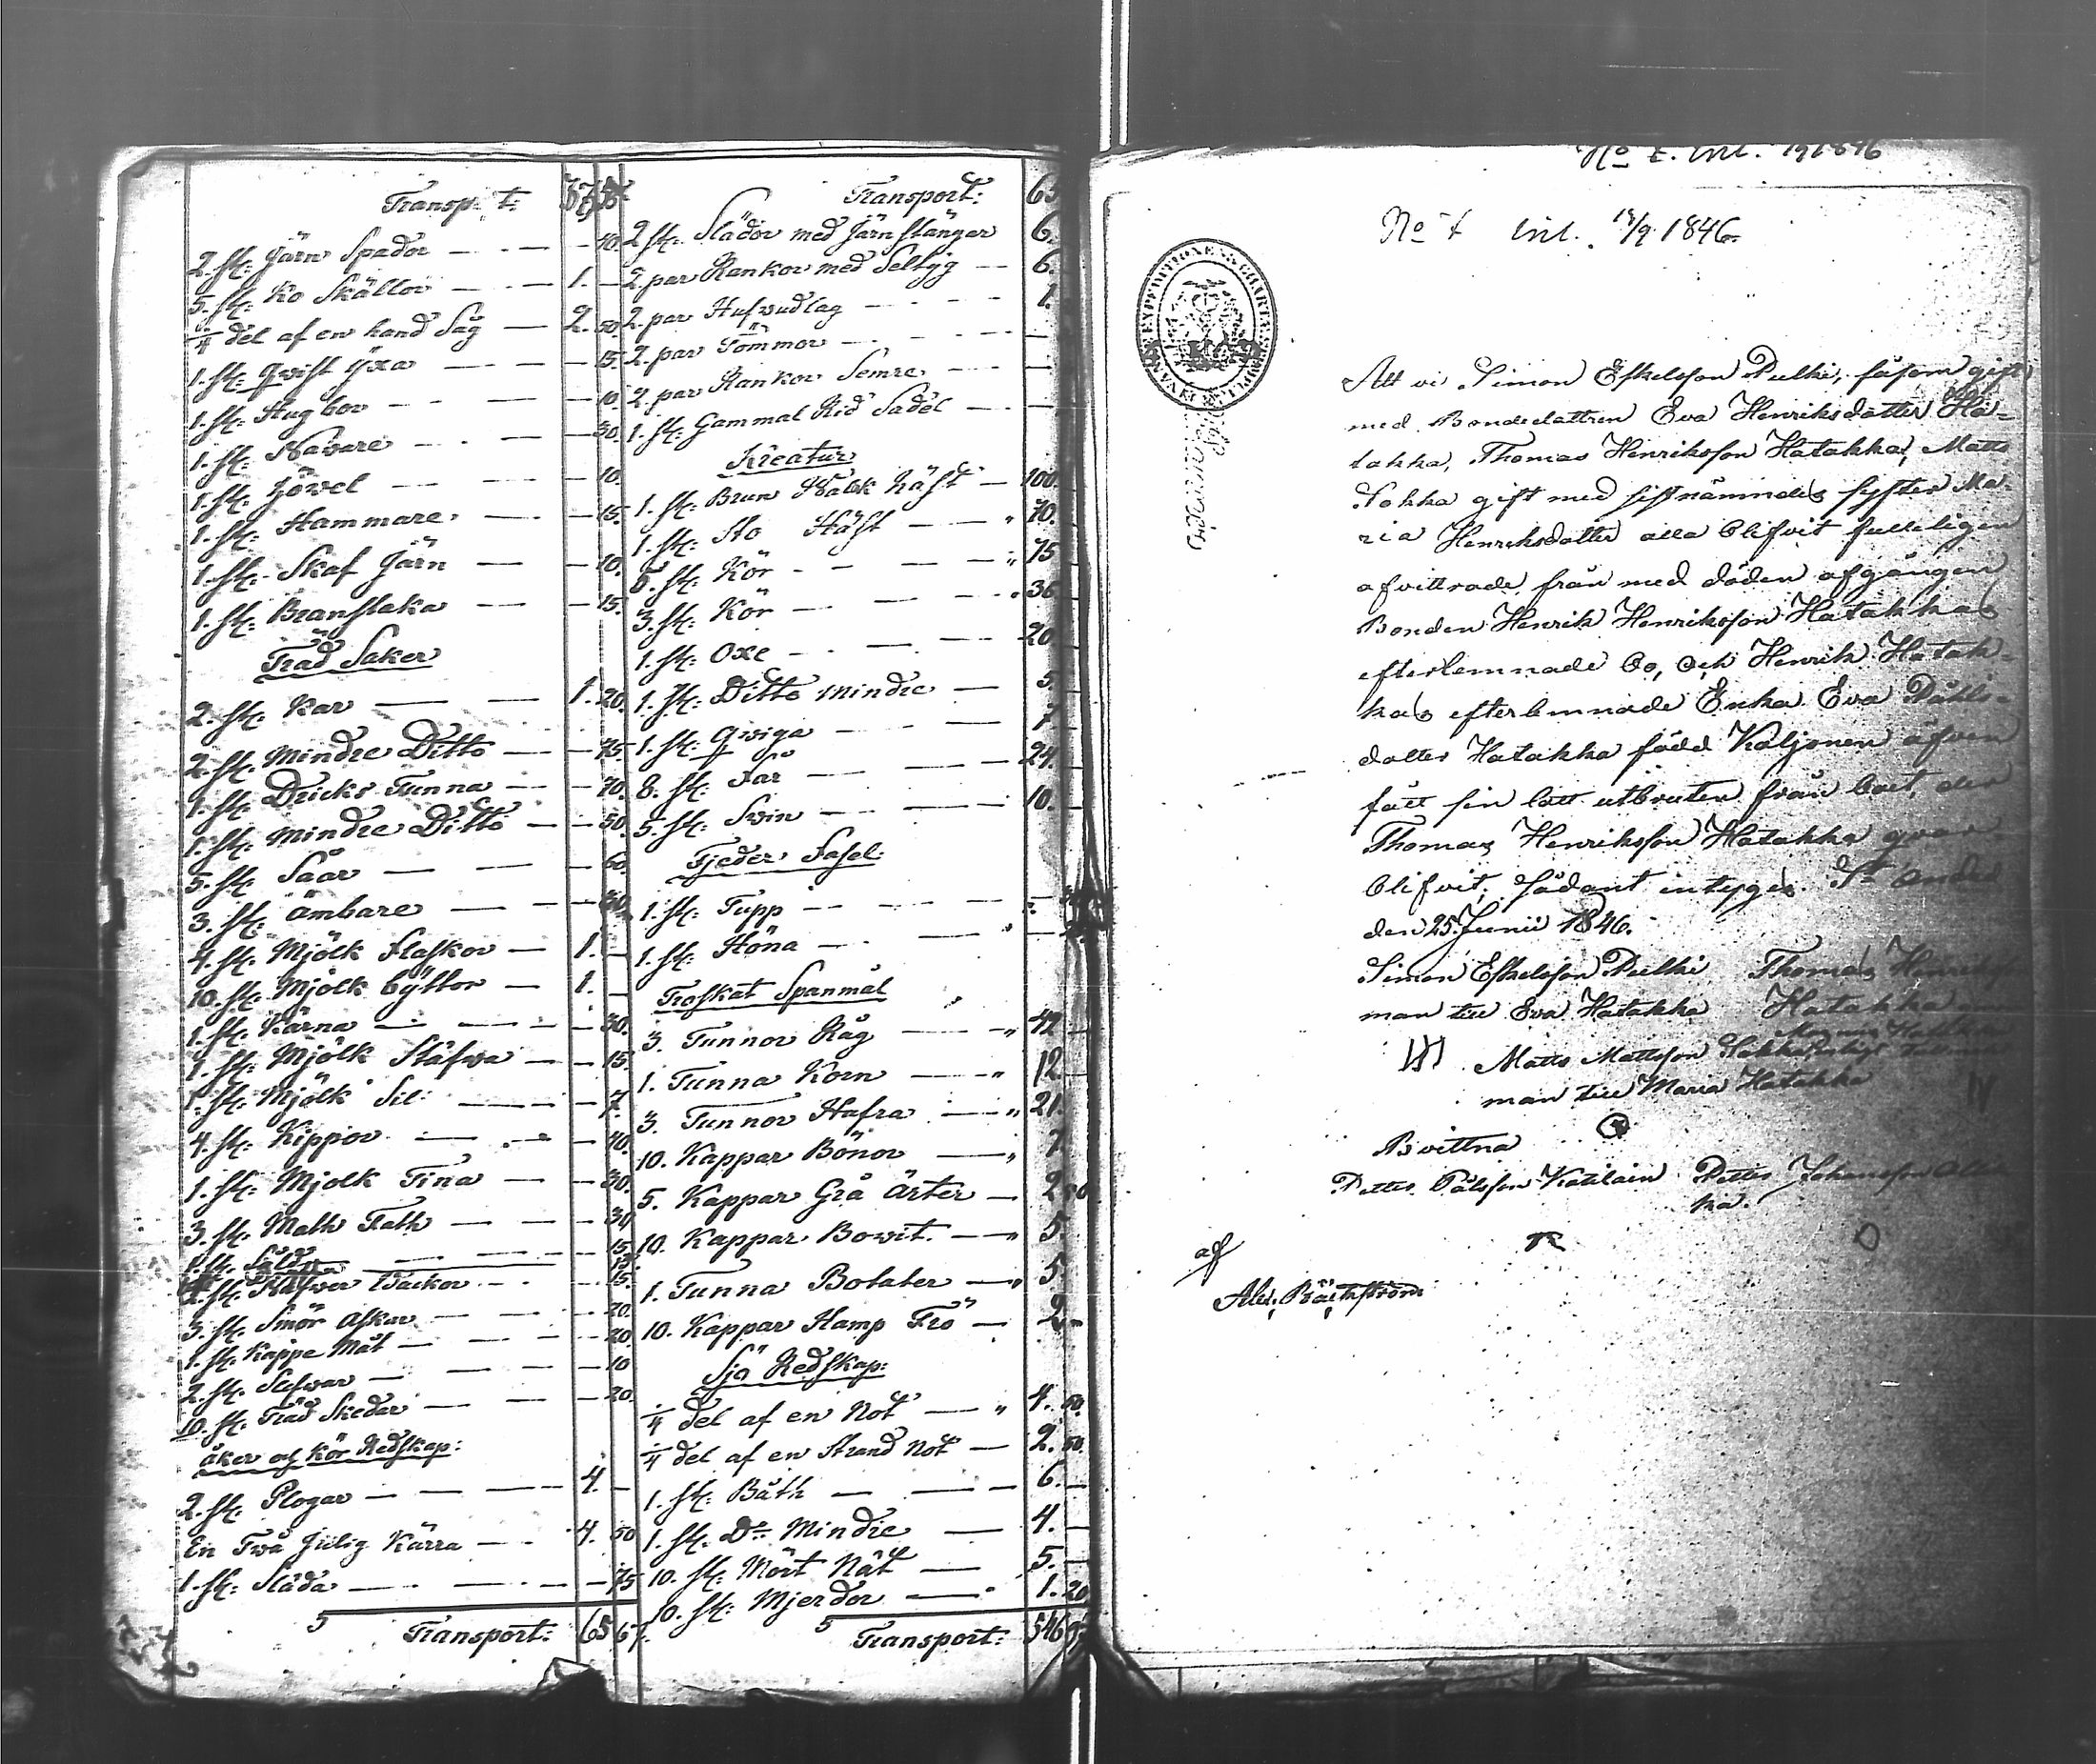 Transport:
2. st: Järn Spador — 40.
5. st: Ko Skällor — 1. —
1/4 del af en hand Såg — 2. 50.
1. st: Qwist Yxa — 15.
1. st: Hugbor — 10.
1. st: Navare — 30.
1. st: Höwel — 10.
1. st: Hammare — 15.
1. st: Skaf Järn — 10.
1. st: Branstaka — 15.
Träd Saker
2. st: Kar — 1. 20.
2. st: Mindre Ditto — 75.
1. st: Dricks Tunna — 70.
1. st: Mindre Ditto — 50.
5. st: Såar — 60.
3. st: Ämbare —
4. st: Mjölk Flaskor — 1. —
10. st: Mjölk Byttor — 1. —
1. st: Kärna — 30.
1. st: Mjölk Stäfwa — 15.
1. st: Mjölk Sil: — 7.
4. st: Kippor — 40.
1. st: Mjolk Tina — 30.
3. st: Math Fath — 30
1. st: Såld — 15.
2. st: Wackor — 15.
3. st: Smör Askar — 20.
1. st: Kappe Måt — 20.
2. st: Slefwar — 10
10. st: Träd Skedar — 20.
åker och Kör Redskap:
2. st: Plogar — 4. —
En Twå Julig Kärra — 4. 50
1. st: Släda — 75
5 Transport: 65 67.
Transport: 65
2 st: Slädor med Järn stänger 6.
2 par Rankor med Seltyg — 6.
2. par Hufwudlag — 1.
2. par Tömmor —
2. par Rankor Semre —
1. st: Gammal Rid Sadel —
Kreatur
1. st: Brun Walak häst — 100.
1. st: Sto Häst — 70.
5. st: Kör — 75
3. st: Kör — 36
1. st: Oxe — 20
1. st: Ditto Mindre — 5.
1. st: Qwiga — 7
8. st: Får — 24.
5. st: Swin — 10.
Fjeder Fasel:
1. st: Tupp —
1. st: Höna —
Troskat Spanmål
3. Tunnor Råg — 42 —
1. Tunna Korn — 12 —
3. Tunnor Hafra — 21.
10. Kappar Bönor — 7
5. Kappar Grå Ärter — 2 50
10. Kappar Bowit. — 5.
1. Tunna Potater — 5
10. Kappar Hamp Frö — 2 —
Sjö Redskap:
1/4 del af en Not — 4. 50.
1/4 del af en Strand Not — 2. 50.
1. st: Båth — 6. —
1. st: Do Mindre — 4. —
10. st: Mört Nät — 5. —
10. st: Mjerdor — 1. 20
5 Transport: 546
Inl. 1846
No Inl. 18/9 1846.
Att vi Simon Eskelsson Pulki, såsom gift
med Bondedottren Eva Henriksdotter Ha-
takka, Thomas Henriksson Hatakka, Matts
Tokka gift med sistnämndes syster Ma-
ria Henriksdotter alla blifvit fulleligen
afvittrade från med döden afgången
Bonden Henrik Henriksson Hatakkas
efterlemnade bo, och Henrik Hatak-
kas efterlemnade Enka Eva Påhls-
dotter Hatakka född Kaljonen äfven
fått sin lott utbruten från boet der
Thomas Henriksson Hatakka qvar
blifvit; sådant intygas. St Andree
den 25 Junii 1846.
Simon Eskelsson Pulki Thomas Henriks
man till Eva Hatakka Hatakka
Matts Mattsson
man till Maria Hatakka
Bevittna
Petter Pålsson Katilain Petter Johansson
ka.
af